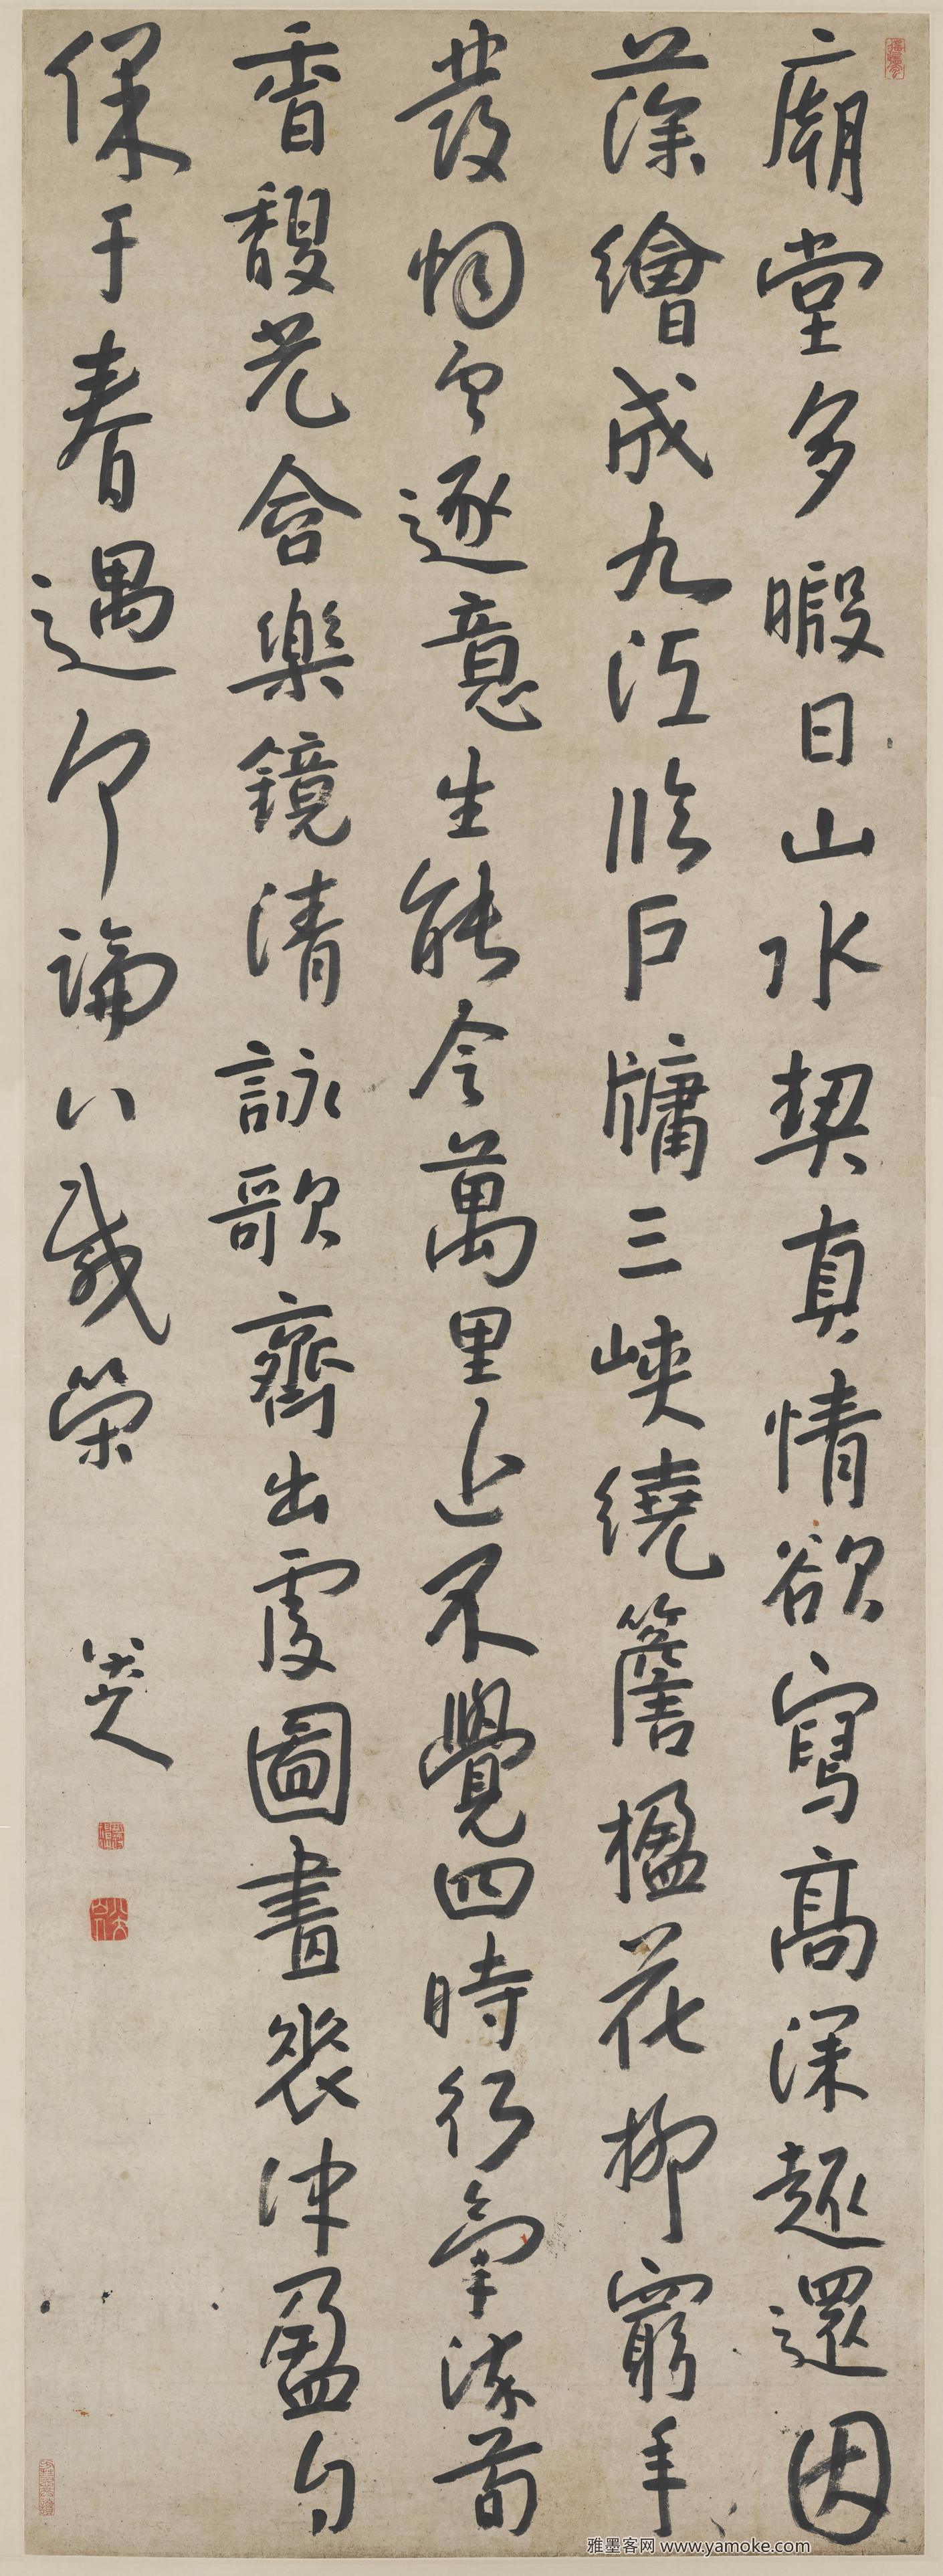 廟堂多暇日山水契真情欲寫高深趣還因
藻繪成九江臨戶牖三峽繞簷楹花柳窮年
發烟雲逐意生能令萬里近不覺四時行氣染荀
香馥光含樂鏡清詠歌齊出處圖畫表沖盈自
保千春遇何論八載榮
八大山人
雅墨客网 www.yamoke.com